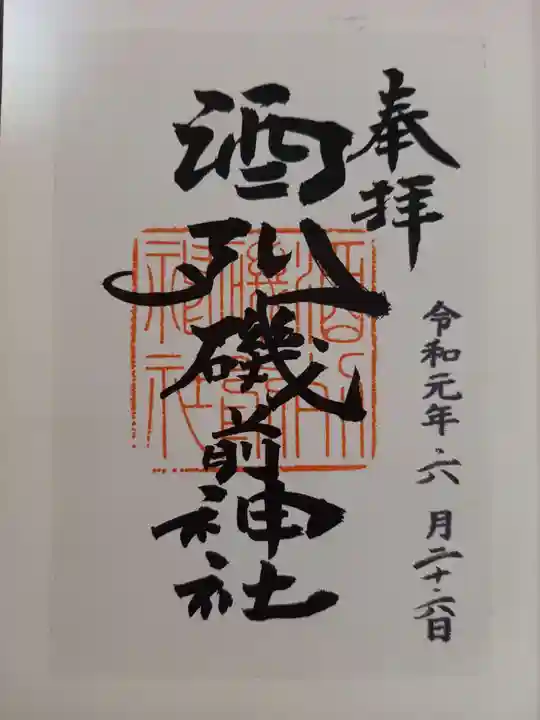 奉拝
令和元年六月二十六日
酒列磯前神社
酒列
磯前
神社